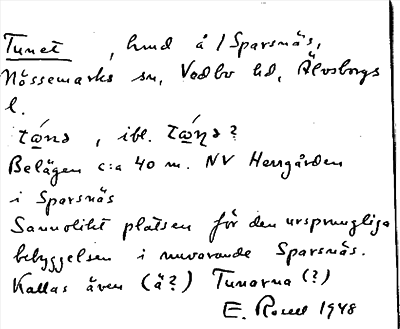 Tunet, lund å / Sparsnäs,
Nössemarks sn, Vedbo hd, Älvsborgs
l.
tώnə, ibl. tώηə?
Belägen c:a 40 m. NV Herrgården
i Sparsnäs
Sannolikt platsen för den ursprungliga
bebyggelsen i nuvarande Sparsnäs.
Kallas även (ä?) Tunarna (?)
E. 1948